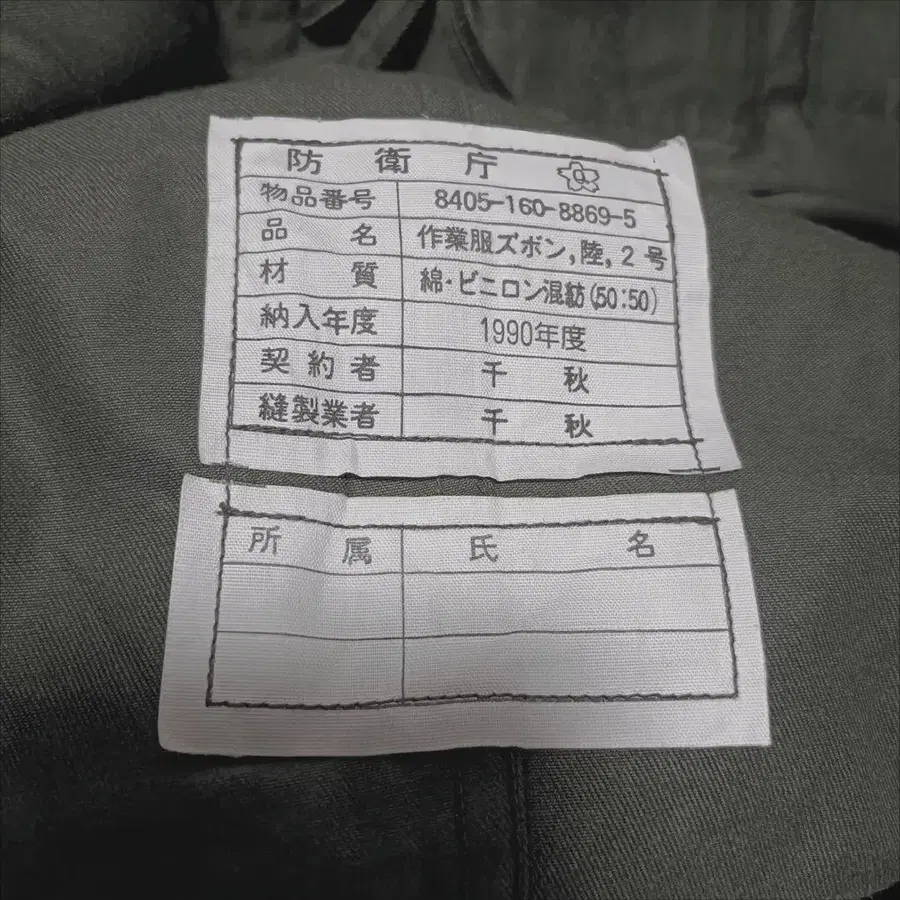 防衛庁
物品番号 8405-160-8869-5
品名 作業服ズボン,陸,2号
材質 綿・ビニロン混紡(50:50)
納入年度 1990年度
契約者 千秋
縫製業者 千秋
所属 氏名